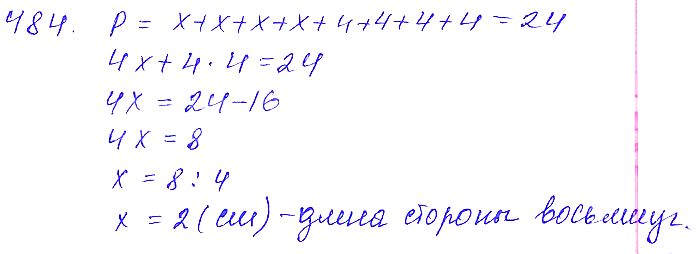 484. P = x+x+x+x+4+4+4+4 = 24
4x+4·4=24
4x = 24-16
4x = 8
x = 8:4
x = 2(см) - длина стороны восьмиуг.